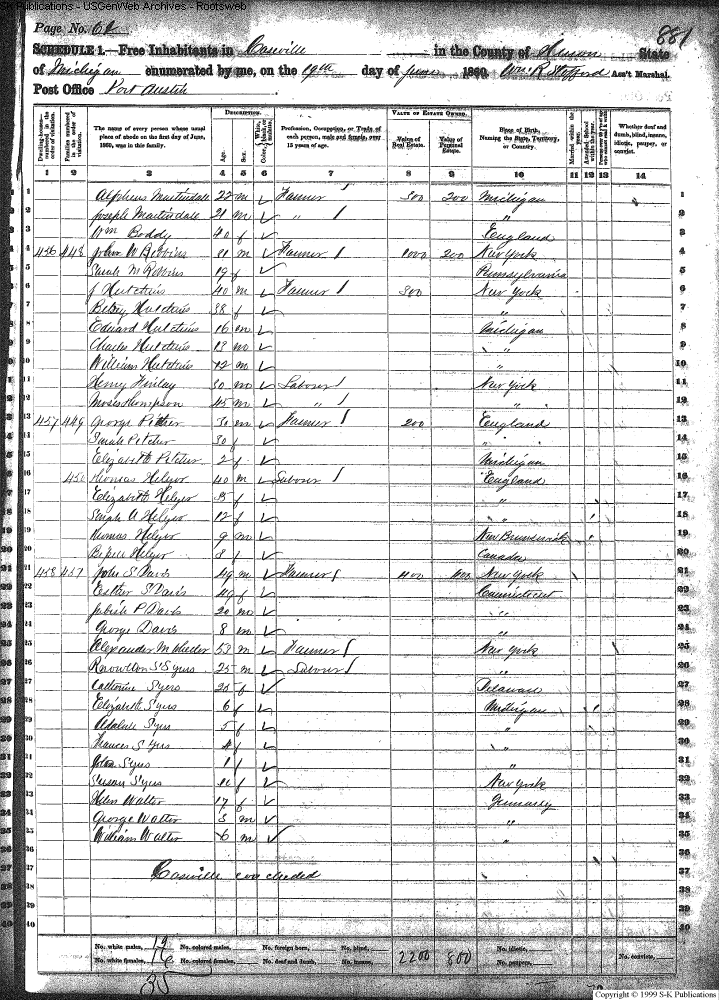 S-K Publications - USGenWeb Archives - Rootsweb
Page No. 61
881
SCHEDULE 1.—Free Inhabitants in Caseville in the County of Huron State
of Michigan enumerated by me, on the 19th day of June 1860. Wm R Stafford Ass't Marshal.
Post Office Port Austin
Dwelling-houses—numbered in the order of visitation.
Families numbered in the order of visitation.
The name of every person whose usual place of abode on the first day of June, 1860, was in this family.
DESCRIPTION.
Age.
Sex.
Color, White, black, or mulatto.
Profession, Occupation, or Trade of each person, male and female, over 15 years of age.
VALUE OF ESTATE OWNED.
Value of Real Estate.
Value of Personal Estate.
Place of Birth, Naming the State, Territory, or Country.
Married within the year.
Attended School within the year.
Whether deaf and dumb, blind, insane, idiotic, pauper, or convict.
1 2 3 4 5 6 7 8 9 10 11 12 13 14
1 Alpheus Martindale 22 m Farmer 300 200 Michigan 1
2 Joseph Martindale 21 m " " 2
3 Wm Boddy 40 England 3
4 456 448 John W Robbins m Farmer 1000 200 New York 4
5 Sarah M Robbins 19 f Pennsylvania 5
6 J Hutchins 40 m Farmer 300 New York 6
7 Betsey Hutchins 38 f " 7
8 Edward Hutchins 16 m Michigan 8
9 Charles Hutchins 13 m " 9
10 William Hutchins 12 m " 10
11 Henry Finlay 30 m Labourer New York 11
12 Moses Thompson 45 m " " 12
13 457 449 George Pitcher 30 m Farmer 200 England 13
14 Sarah Pitcher 30 f " 14
15 Elizabeth Pitcher 2 f Michigan 15
16 450 Thomas Helyer 40 m Labourer England 16
17 Elizabeth Helyer f " 17
18 Sarah A Helyer 12 f " 18
19 Thomas Helyer 9 m New Brunswick 19
20 Helyer 8 f Canada 20
21 458 451 John S Davis 49 m Farmer New York 21
22 Esther S Davis 49 f Connecticut 22
23 P Davis 20 m " 23
24 George Davis 8 m " 24
25 Alexander M Wheeler 53 m Farmer New York 25
26 Knowlton S Syers 25 m Labourer " 26
27 Catherine Syers 25 f Delaware 27
28 Elizabeth Syers 6 f Michigan 28
29 Adaline Syers 5 f " 29
30 Frances S Syers 4 f " 30
31 Syers 1 f " 31
32 Susan Syers f New York 32
33 Helen Walter 17 f Germany 33
34 George Walter 3 m " 34
35 William Walter 6 m " 35
36 36
37 Caseville concluded 37
38 38
39 39
40 40
No. white males, 19 No. colored males, No. foreign born, No. blind, 2200 800 No. idiotic,
No. white females, 16 No. colored females, No. deaf and dumb, No. insane, No. paupers, No. convicts,
35
Copyright © 1999 S-K Publications